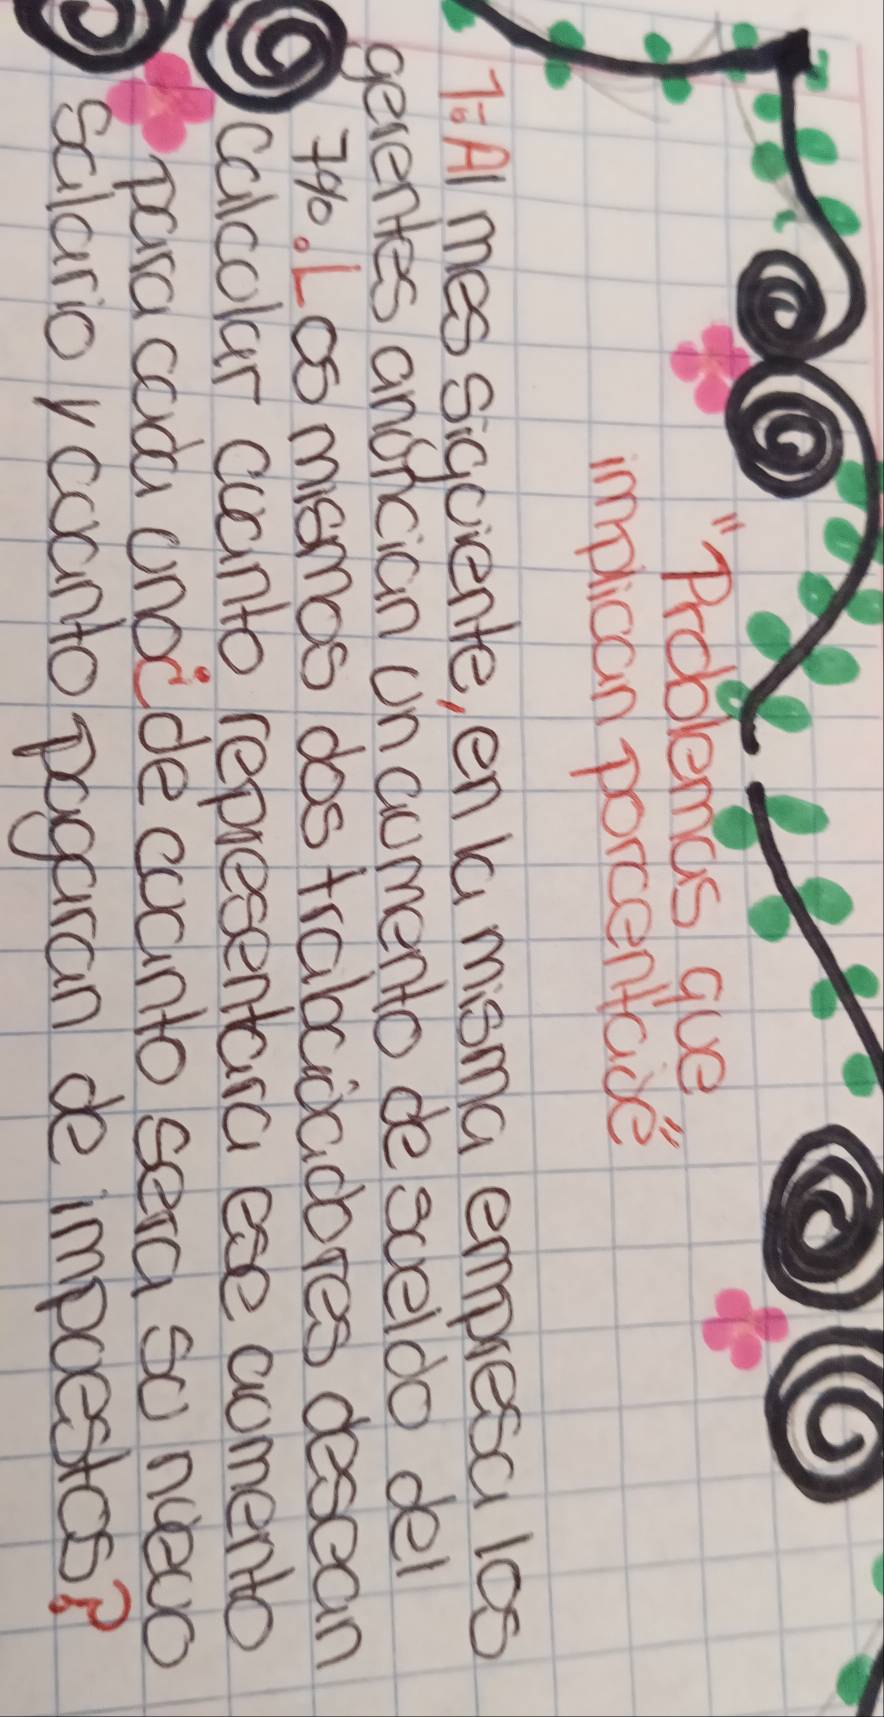 "Problemas que
implican porcentaje"
1.- Al mes siguiente, en la misma empresa los
gerentes anuncian un aumento de sueldo del
7%. Los mismos dos trabajadores desean
calcolar cuanto representara ese aumento
para cada uno ¿de cuanto sera su nuevo
salario y cuanto pagaran de impuestos?